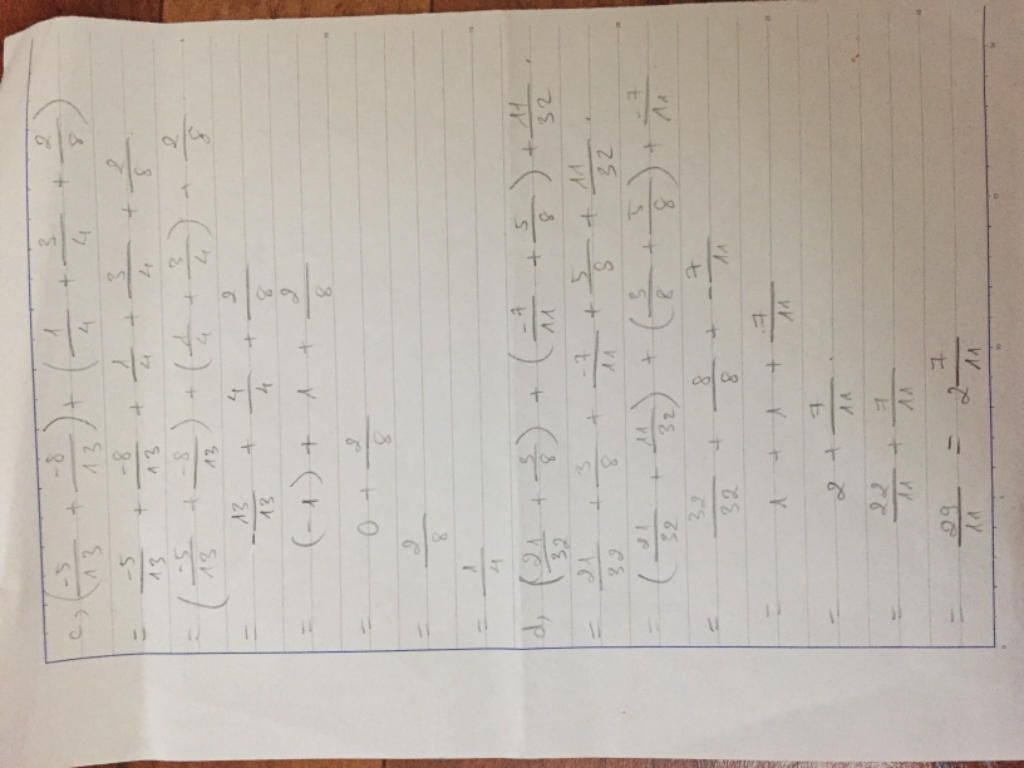 c, (-5/13 + -8/13) + (1/4 + 3/4 + 2/8)
= -5/13 + -8/13 + 1/4 + 3/4 + 2/8
= (-5/13 + -8/13) + (1/4 + 3/4) + 2/8
= -13/13 + 4/4 + 2/8
= (-1) + 1 + 2/8
= 0 + 2/8
= 2/8
= 1/4
d, (21/32 + 3/8) + (-7/11 + 5/8) + 11/32
= 21/32 + 3/8 + -7/11 + 5/8 + 11/32
= (21/32 + 11/32) + (3/8 + 5/8) + -7/11
= 32/32 + 8/8 + -7/11
= 1 + 1 + -7/11
= 2 + 7/11
= 22/11 + 7/11
= 29/11 = 2 7/11